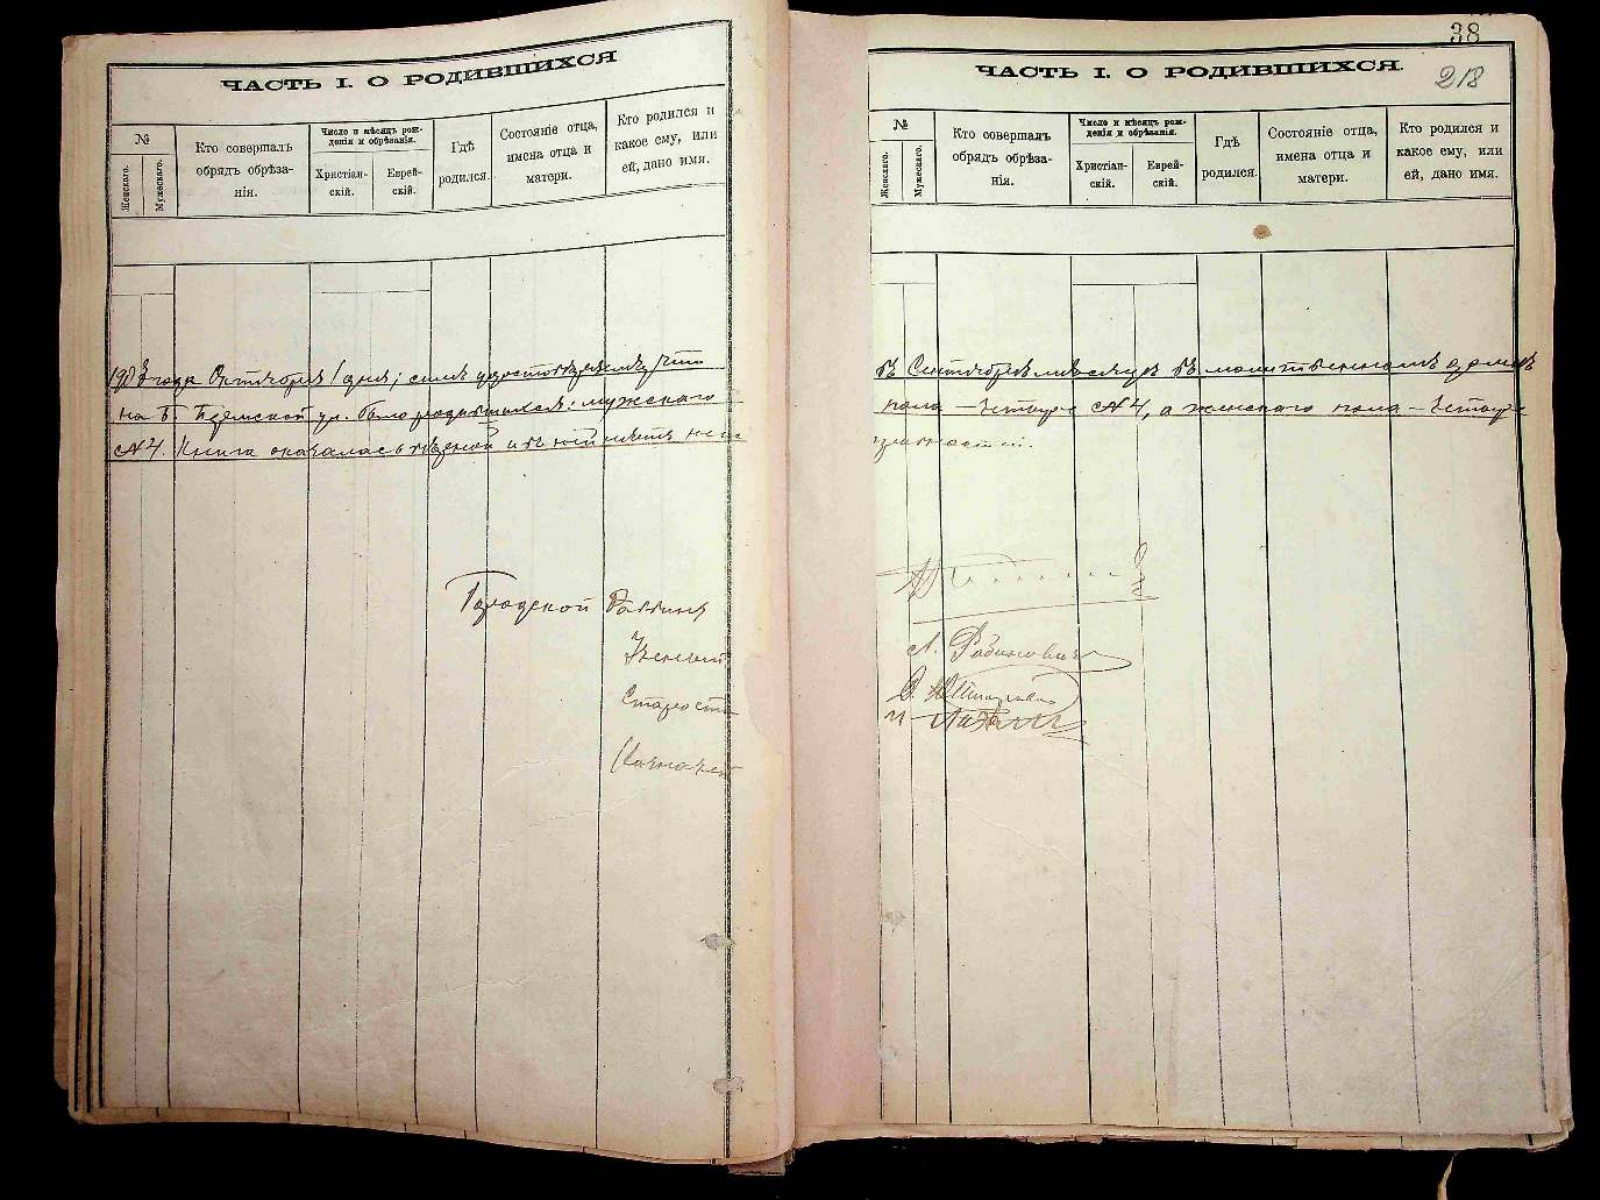 ЧАСТЬ I. О РОДИВШИХСЯ
№
Женскаго.
Мужескаго.
Кто совершалъ
обрядъ обрѣза-
нія.
Число и мѣсяцъ рож-
денія и обрѣзанія.
Христіан-
скій.
Еврей-
скій.
Гдѣ
родился.
Состояніе отца,
имена отца и
матери.
Кто родился и
какое ему, или
ей, дано имя.
года Октября 1 дня; симъ удостовѣряемъ, что
на Б. ул. было родившихся: мужскаго
№ 4. Книга оказалась цѣлой и въ ней нѣтъ
Городской Раввинъ
Ученый
Староста
Казначей
38
218
ЧАСТЬ I. О РОДИВШИХСЯ.
№
Женскаго.
Мужескаго.
Кто совершалъ
обрядъ обрѣза-
нія.
Число и мѣсяцъ рож-
денія и обрѣзанія.
Христіан-
скій.
Еврей-
скій.
Гдѣ
родился.
Состояніе отца,
имена отца и
матери.
Кто родился и
какое ему, или
ей, дано имя.
въ Сентябрѣ мѣсяцѣ въ молитвенномъ домѣ
пола — четыре № 4, а женскаго пола — четыре
Л. Рабиновичъ